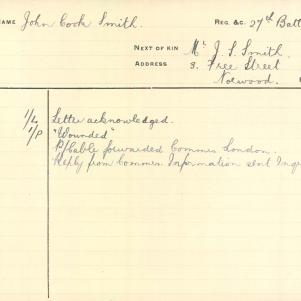 NAME John Cook Smith. REG. &C. 27th Batt
NEXT OF KIN Mr J. S. Smith.
ADDRESS 3. Free Street
Norwood.
1/4 Letter acknowledged.
1/P "Wounded"
P/Cable forwarded Commrs London.
Reply from Commrs. Information sent